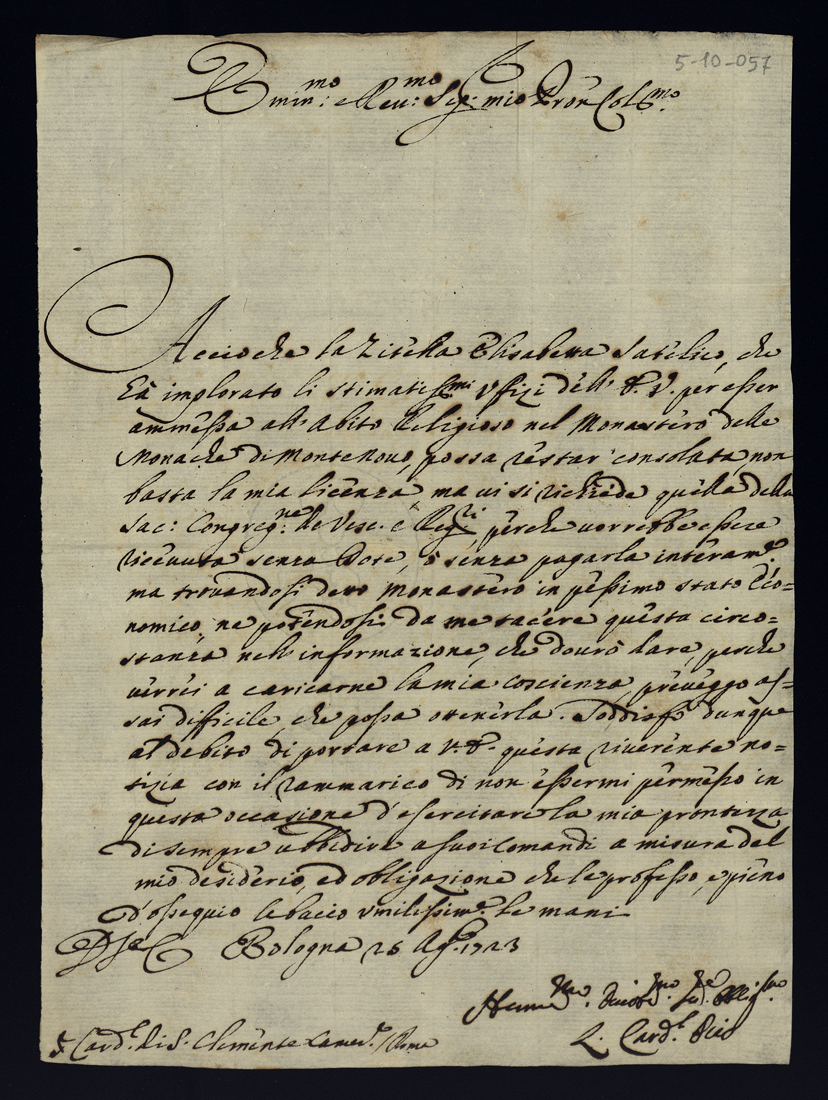 5-10-057
Emin:mo e Rev:mo Sig: mio Pron Colmo
Acciochè la Zitella Elisabetta Satelico, che
hà implorato li stimatissmi Uffizi dell' E. V. per esser
ammessa all'Abito Religioso nel Monastero delle
Monache di Montenovo, possa restar consolata, non
basta la mia licenza, ma vi si richiede quella della
Sac: Congreg:ne de Vesc: e Reg:ri perche vorrebbe essere
ricevuta senza Dote, ò senza pagarla interam:e
ma trovandosi detto Monastero in pessimo stato Eco=
nomico, ne potendosi da me tacere questa circo=
stanza nell'informazione, che dourò dare, perche
verrei a caricarne la mia coscienza, preveggo as=
sai difficile, che possa ottenerla. Soddisfo dunque
al debito di portare a V. E. questa riverente no=
tizia con il rammarico di non essermi permesso in
questa occasione d'esercitare la mia prontezza
di sempre ubbidire a suoi comandi a misura del
mio desiderio, ed obligazione che le professo, e pieno
d'ossequio le bacio umilissim:e le mani
Di V. E. Bologna 28 Ag:o 1723
Humil:mo Divot:mo Se:re Oblig:mo
L. Card:l Pico
S:r Card:l di S: Clemente Camer:o /Roma